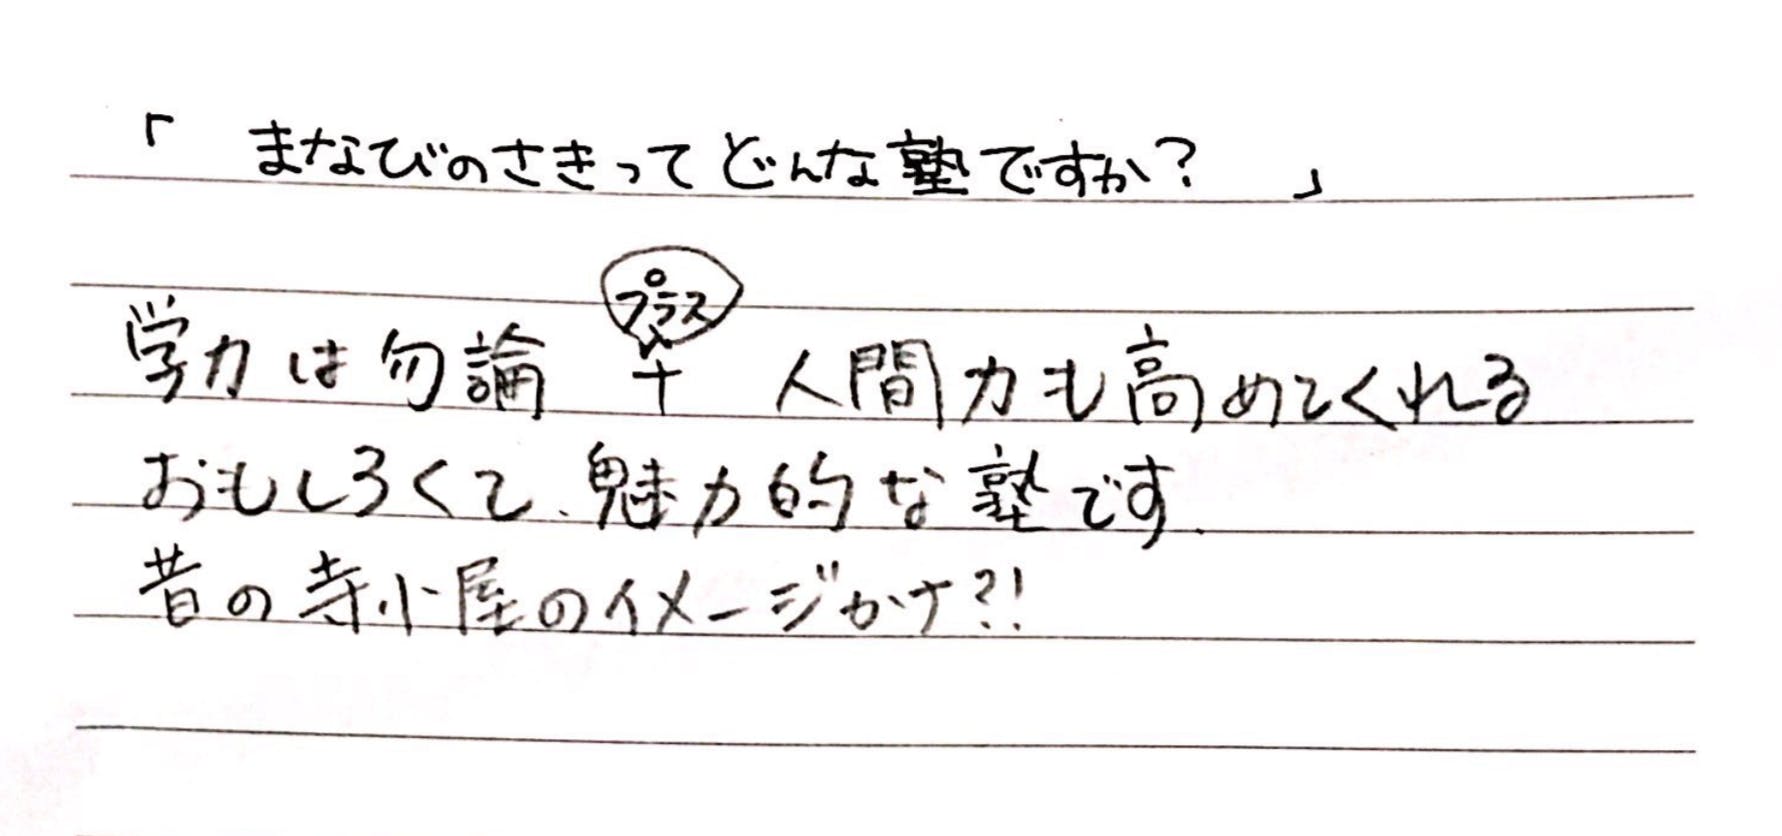 「 まなびのさきってどんな塾ですか? 」
プラス
学力は勿論 + 人間力も高めてくれる
おもしろくて、魅力的な塾です.
昔の寺小屋のイメージかナ?!